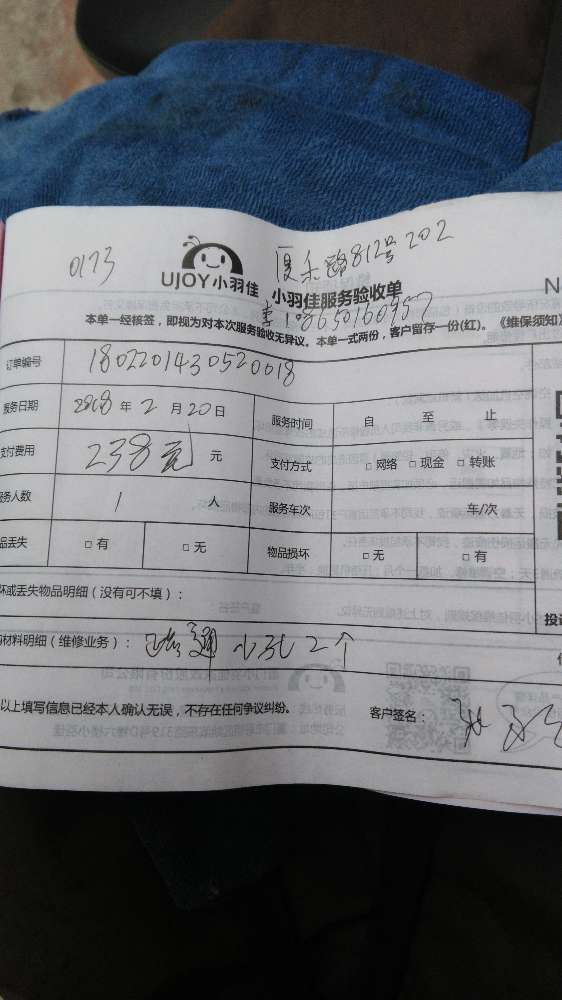 0173
厦禾路812号202
UJOY小羽佳 小羽佳服务验收单
李 18650160957
本单一经核签，即视为对本次服务验收无异议。本单一式两份，客户留存一份(红)。《维保须知》
订单编号 1802201430520018
服务日期 2018 年 2 月 20 日 服务时间 自 至 止
支付费用 238元 元 支付方式 □ 网络 □ 现金 □ 转账
服务人数 1 人 服务车次 车/次
品丢失 □ 有 □ 无 物品损坏 □ 无 □ 有
坏或丢失物品明细（没有可不填）：
投
材料明细（维修业务）： 通 2个
以上填写信息已经本人确认无误，不存在任何争议纠纷。 客户签名：